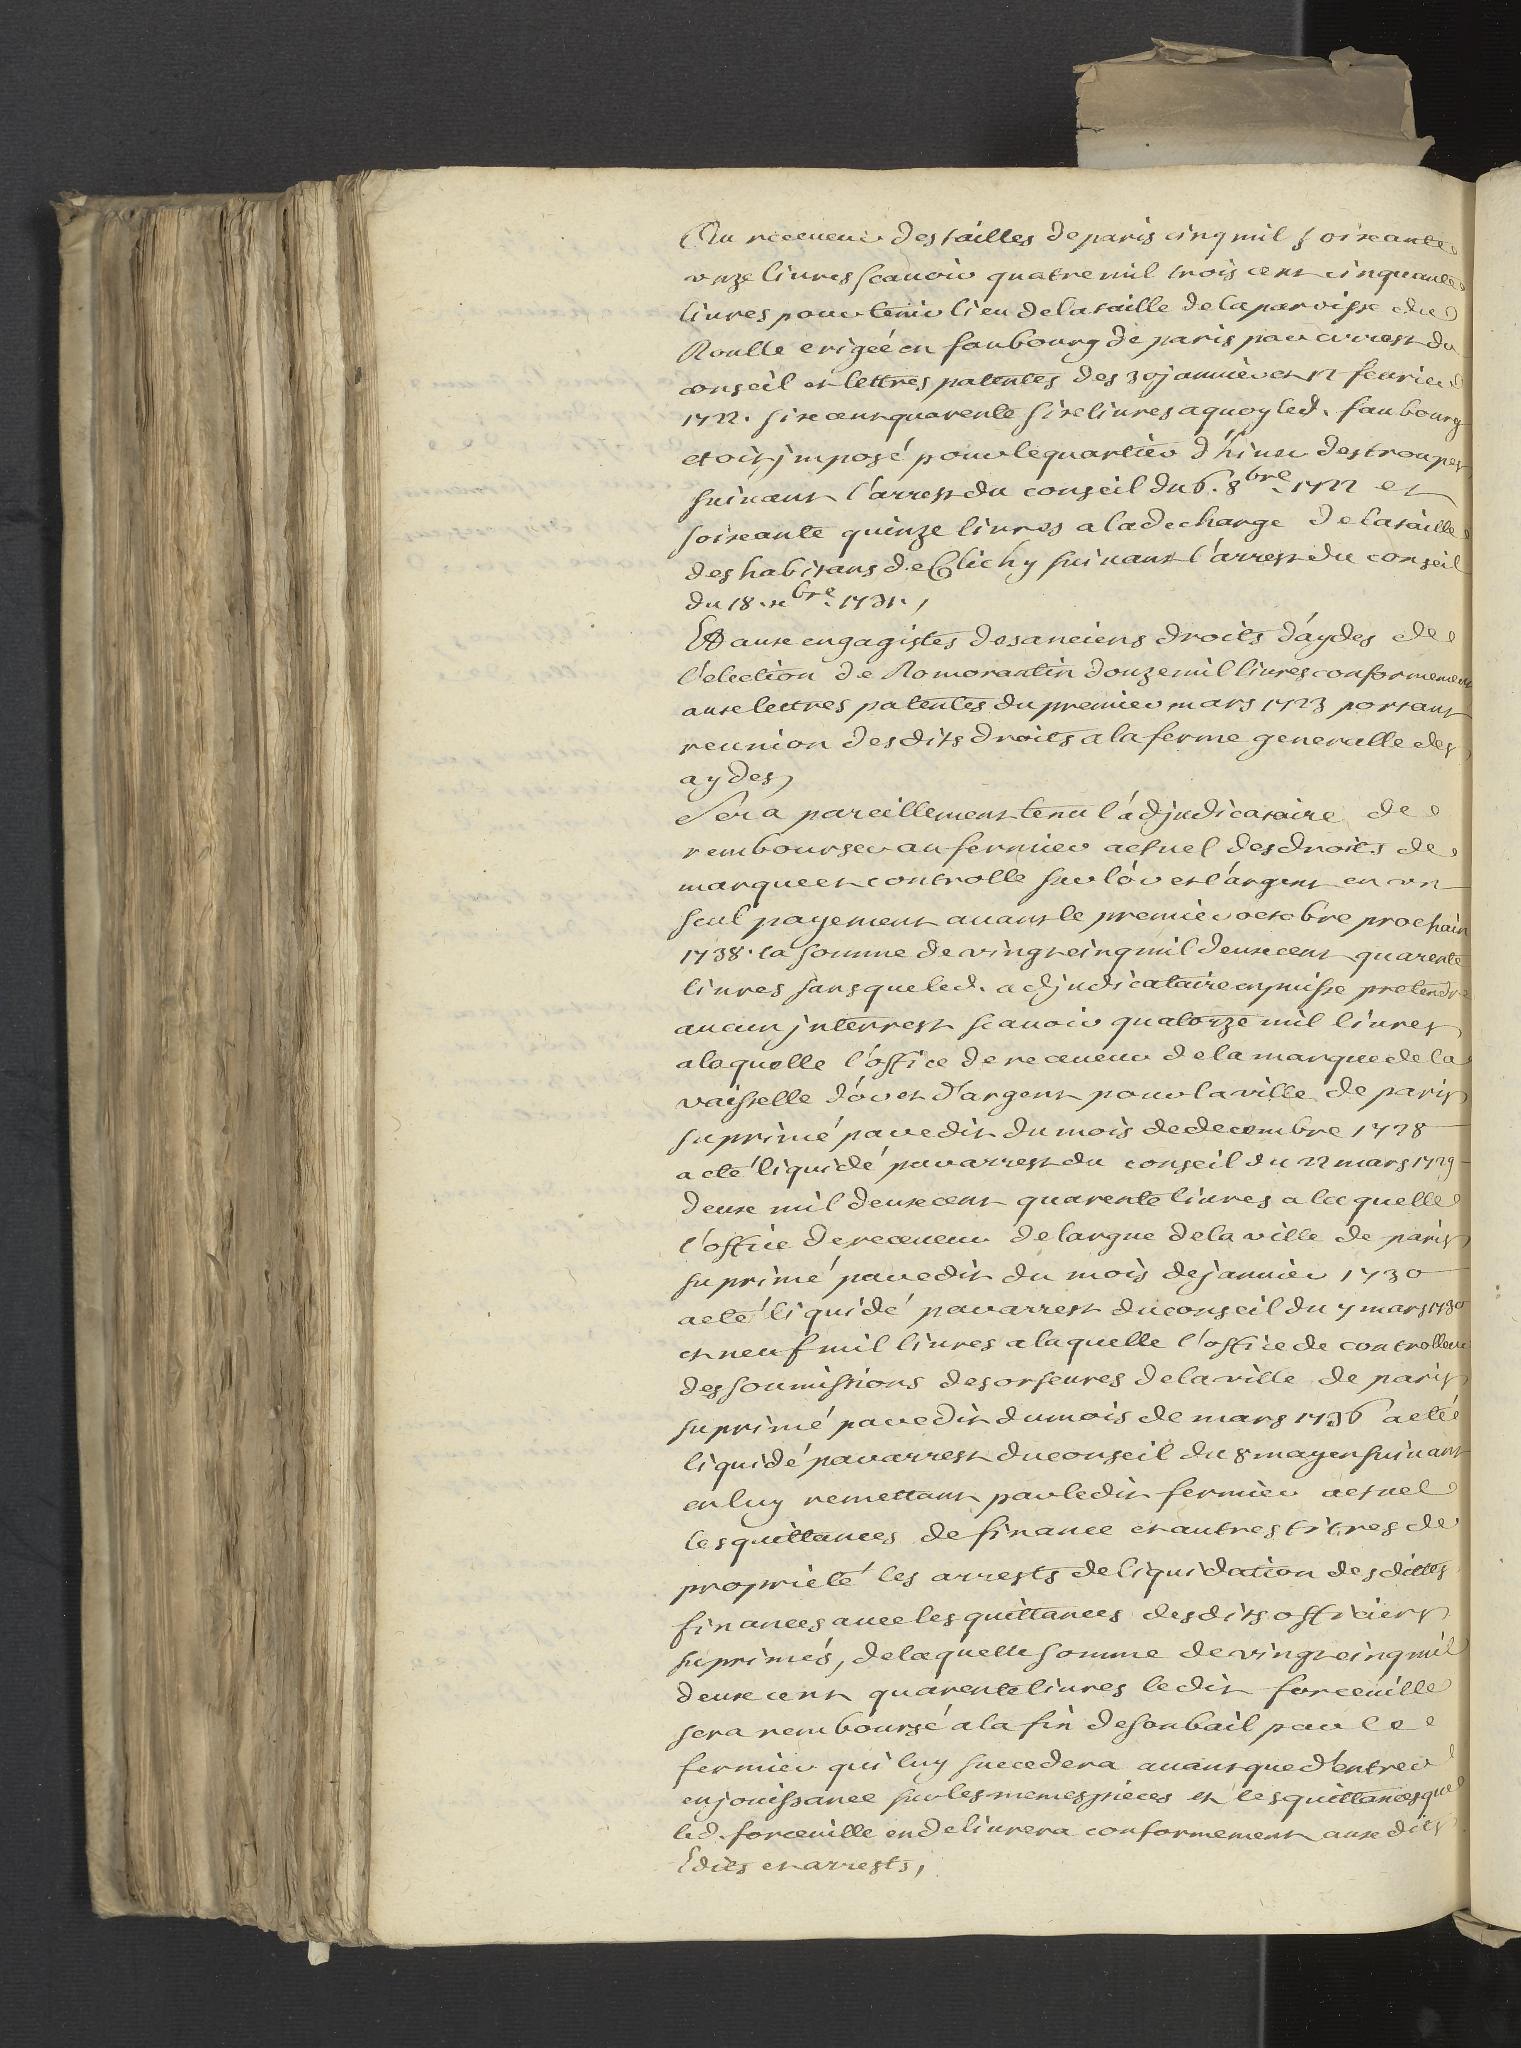 Au receveur des tailles de paris cinq mil soixante
onze livres scavoir quatre mil trois cent cinquante
livres pour tenir lieu de la taille de la paroisse du
Roulle erigée en faubourg de paris par arrest du
conseil et lettres patentes des 30 janvier et 12 fevrier
1722. six cent quarente six livres a quoy led. faubourg
etoit imposé pour le quartier d'hiver des troupes
suivant l'arrest du conseil du 6. 8bre. 1722 et
soixante quinze livres a la decharge de la taille
des habitans de Clichy suivant l'arrest du conseil
du 18. xbre. 1731.,
Et aux engagistes des anciens droits d'aydes de
l'election de Romorantin douze mil livres conformement
aux lettres patentes du premier mars 1723 portant
reunion desdits droits a la ferme generalle des
aydes,
Sera pareillement tenu l'adjudicataire de
rembourser au fermier actuel des droits de
marque et controlle sur l'or et l'argent en un
seul payement avant le premier octobre prochain
1738. la somme de vingt cinq mil deux cent quarente
livres sans que led. adjudicataire en puisse pretendre
aucun interrest scavoir quatorze mil livres
a laquelle l'office de receveur de la marque de la
vaisselle d'or et d'argent pour la ville de paris
suprimé par edit du mois de decembre 1728
a eté liquidé par arrest du conseil du 22 mars 1729
deux mil deux cent quarente livres a laquelle
l'office de receveur de l'argue de la ville de paris
suprimé par edit du mois de janvier 1730
a eté liquidé par arrest du conseil du 7 mars 1730
et neuf mil livres a laquelle l'office de controlleur
des soumissions des orfevres de la ville de paris
suprimé par edit du mois de mars 1736 a eté
liquidé par arrest du conseil du 8 may ensuivant
en luy remettant par ledit fermier actuel
les quittances de finance et autres titres de
proprieté les arrests de liquidation desdittes
finances avec les quittances desdits officiers
suprimés, de laquelle somme de vingt cinq mil
deux cent quarente livres ledit forceville
sera remboursé a la fin de son bail par le
fermier qui luy succedera avant que d'entrer
en jouissance sur les memes pieces et les quittances que
led. forceville en delivrera conformement auxdits
Edits et arrests,